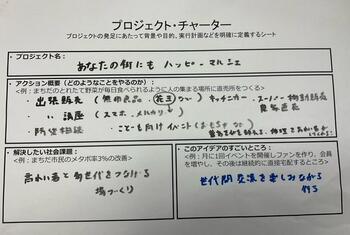 プロジェクト・チャーター
プロジェクトの発足にあたって背景や目的、実行計画などを明確に定義するシート
プロジェクト名：
あなたの街にも ハッピーマルシェ
アクション概要（どのようなことをやるのか）：
<例：まちだのとれたて野菜が毎日食べられるように人の集まる場所に直売所をつくる>
・出張販売（無印良品・花三 ）キッチンカー・スーパー移動販売
・〃 講座（スマホ・メルカリ
・防災相談 ・こども向けイベント（おもちゃ
解決したい社会課題：
<例：まちだ市民のメタボ率3％の改善>
高れい者と 世代をつなげる
場づくり
このアイデアのすごいところ：
<例：月に1回イベントを開催しファンを作り、会員を増やし、その後は継続的に直接宅配するところ>
世代間交流を楽しみながら
作る